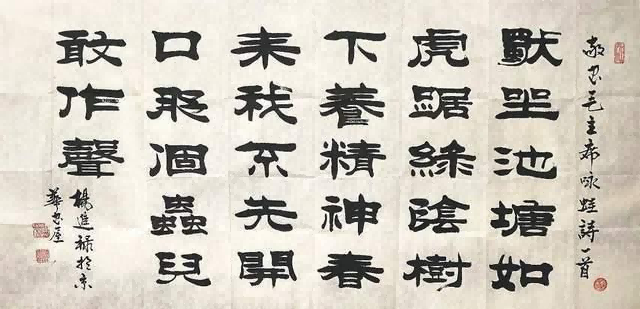 敬書毛主席咏蛙詩一首
獸坐池塘如
虎踞綠陰樹
下養精神春
來我不先開
口那個蟲兒
敢作聲
楊進祿於京
華書屋